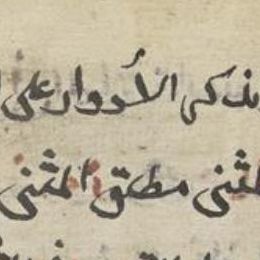 ونذكر الأدوار على
المثنى مطلق المثنى